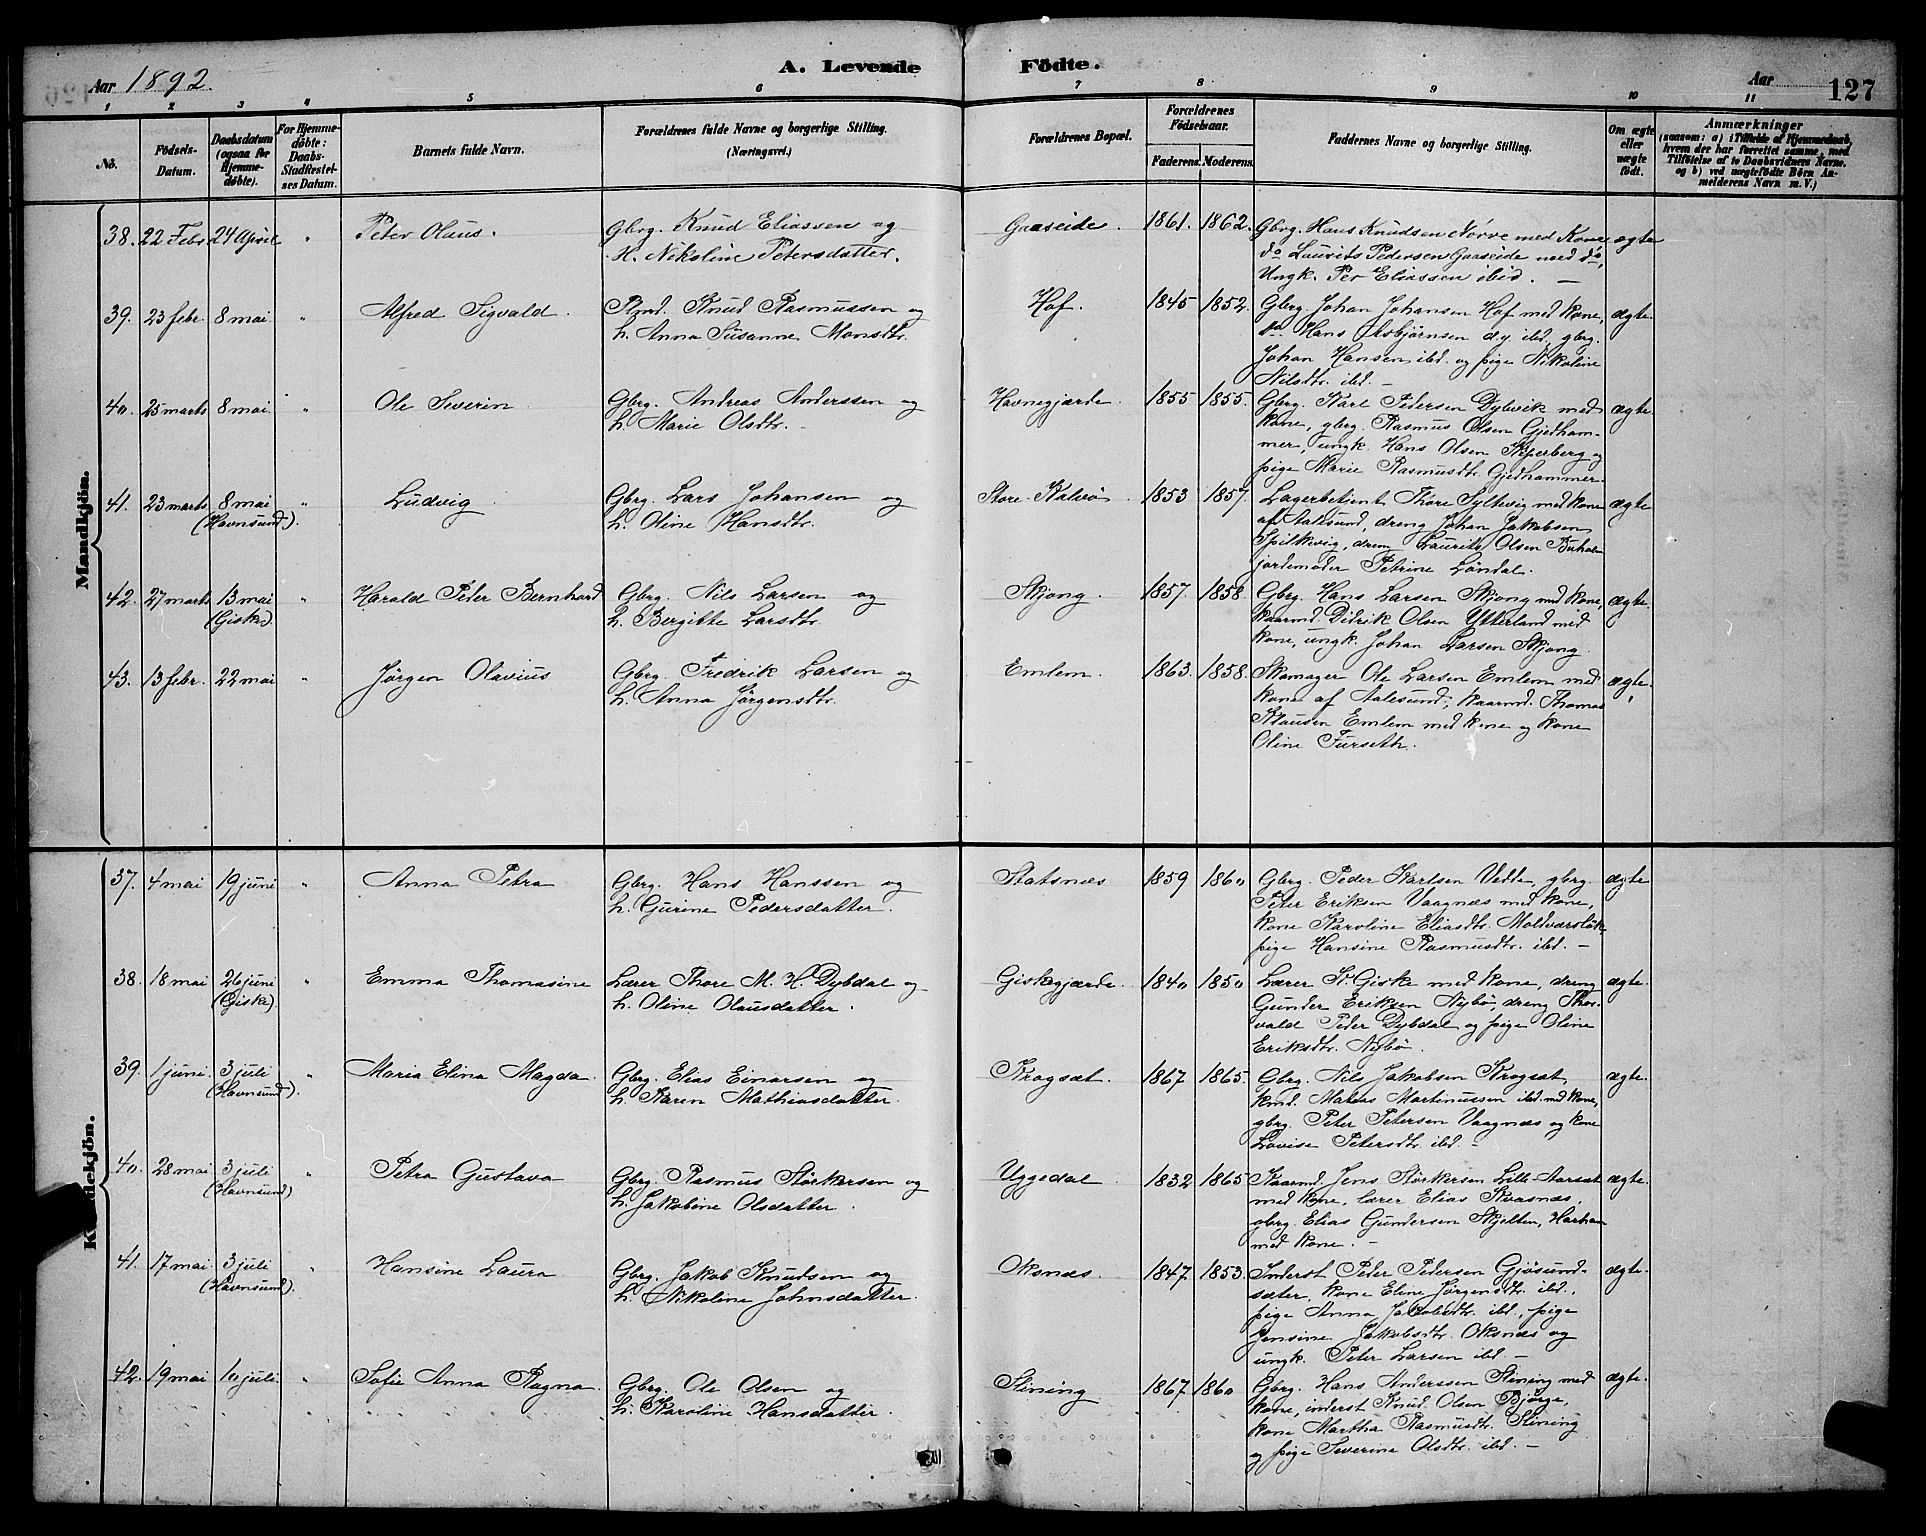 Aar 1892.
A. Levende Födte.
Aar
127
1 2 3 4 5 6 7 8 9 10 11
No.
Födsels-
Datum.
Daabsdatum
(ogsaa for
Hjemme-
döbte).
For Hjemme-
döbte:
Daabs-
Stadfæstel-
ses Datum.
Barnets fulde Navn.
Forældrenes fulde Navne og borgerlige Stilling.
(Næringsvei.)
Forældrenes Bopæl.
Forældrenes
Födselsaar.
Faderens. Moderens.
Faddernes Navne og borgerlige Stilling.
Om ægte
eller
uægte
födt.
Anmærkninger
(saasom: a) i Tilfælde af Hjemmedaab,
hvem der har forrettet samme, med
Tilföielse af to Daabsvidners Navne.
og b) ved uægtefödte Börn An-
melderens Navn m. V.)
Mandkjön.
38. 22 Febr 24 April " Peter Olaus. Gbrg. Knud Eliassen og Gaaseide. 1861. 1862. Gbrg. Hans Knudsen Nörve med Kone, ægte
H. Nikoline Petersdatter. do Laurits Pedersen Gaaseide med do,
Ungk. Per Eliassen ibid. —
39. 23 febr. 8 mai " Alfred Sigvald. Strmd. Knud Rasmussen og Hof. 1845 1852. Gbrg Johan Johansen Hof med kone, ægte.
h. Anna Susanne Monsdtr. do Hans Asbjørnsen d.y. ibd, gbrg.
Johan Hansen ibd. og pige Nikoline
Nilsdtr. ibd. —
40. 25 marts 8 mai. " Ole Severin Gbrg. Andreas Anderssen og Havnegjærde. 1855 1855. Gbrg. Karl Pedersen Dybvik med ægte.
h. Marie Olsdtr. kone, gbrg. Rasmus Olsen Gjedham-
mer, ungk. Hans Olsen og
pige Marie Rasmusdtr. Gjedhammer.
41. 23 marts 8 mai " Ludvig Gbrg. Lars Johansen og Store Kalvø. 1853 1857. Lagerbetjent Thore Syltevig med kone ægte
(Havnsund). h. Oline Hansdtr. af Aalesund, dreng Johan Jakobsen
Spilkevig, dreng Laurits Olsen
jordemoder Petrine Løndal.
42. 27 marts 13 mai " Harald Peder Bernhard Gbrg. Nils Larsen og Skjong. 1857. 1858. Gbrg. Hans Larsen Skjong med kone, ægte.
(Giske). h. Bergitte Larsdtr. kaarmd. Didrik Olsen Ytterland med
kone, ungk. Johan Larsen Skjong.
43. 13 febr. 22 mai " Jørgen Olavius Gbrg. Fredrik Larsen og Emlem. 1863. 1858. Skomager Ole Larsen Emlem med ægte.
h. Anna Jørgensdtr. kone af Aalesund, kaarmd. Thomas
Klausen Emlem med kone og kone
Oline Furseth.
Kvindekjön.
37. 4 mai 19 juni " Anna Petra Gbrg. Hans Hanssen og Statsnæs 1859 1860 Gbrg. Peder Karlsen Vedde, gbrg. ægte
h. Gurine Pedersdatter. Peter Eriksen Vaagnæs med kone,
kone Karoline Eliasdtr.
pige Hansine Rasmusdtr. ibd. —
38. 18 mai 26 juni " Emma Thomasine Lærer Thore M. H. Dybdal og Giskegjærde. 1840 1850 Lærer Giske med kone, dreng ægte.
(Giske). h. Oline Olausdatter. Gunder Eriksen Nybø, dreng Thor-
vald Peder Dybdal og pige Oline
Eriksdtr. Nybø.
39. 1 juni. 3 juli " Maria Elina Magda. Gbrg. Elias Einarsen og Krogsæt. 1867 1865. Gbrg. Nils Jakobsen Krogsæt, ægte.
(Havnsund). h. Karen Mathiasdatter. kmd. Mathias Martinussen ibd. med kone,
gbrg. Peter Petersen Vaagnæs og kone
Lovise Petersdtr. ibd. —
40. 28 mai 3 juli " Petra Gustava Gbrg. Rasmus Størkersen og Uggedal 1832 1865 Kaarmd. Jens Størkersen Lille-Aarsæt ægte.
(Havnsund) h. Jakobine Olsdatter. med kone, lærer Elias Kvasnæs,
gbrg. Elias Gundersen Skjelten, Harham
med kone. —
41. 17 mai 3 juli " Hansine Laura Gbrg. Jakob Knudsen og Oksnæs. 1847 1853. Inderst Peder Pedersen Gjøsund- ægte.
(Havnsund). h. Nikoline Johnsdatter. sæter, kone Eline Jørgensdtr. ibd.,
pige Anna Jakobsdtr. ibd., pige
Jensine Jakobsdtr. Oksnæs og
ungk. Peter Larsen ibd. —
42. 19 mai 10 juli. " Sofie Anna Ragna. Gbrg. Ole Olsen og Slining 1867 1860 Gbrg. Hans Anderssen Slining med ægte.
h. Karoline Hansdatter. kone, inderst Knud Olsen Bjørge,
kone Martha Rasmusdtr. Slining
og pige Severine Olsdtr. ibd. —